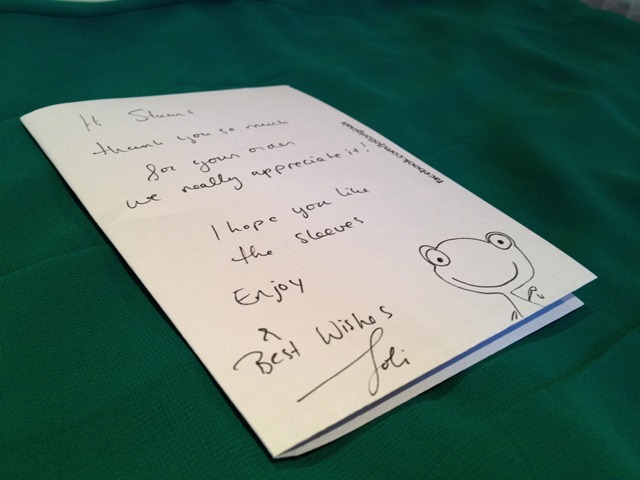 Hi Stuart
thank you so much
for your order
we really appreciate it!
I hope you like
the sleeves
Enjoy
x
Best Wishes
Joli